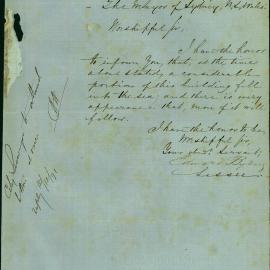 The Mayor of Sydney, N.S. Wales
Worshipful Sir,
I have the honor
to inform You, that, at the time
above stated, a considerable
portion of this building fell
into the sea, and there is every
appearance that, more of it will
follow.
I have the honor to be,
Worshipful Sir,
Your obdt. Servant,
Lessee
City Surveyor